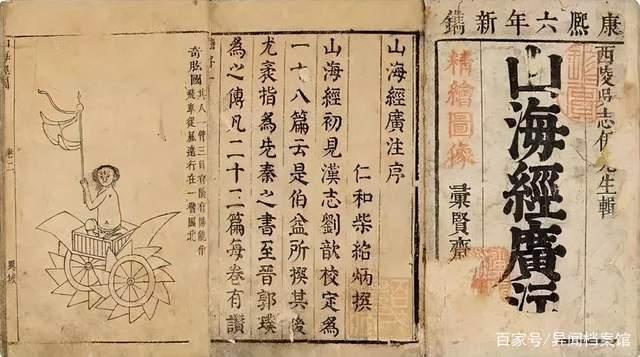 康熙六年新鐫
西陵吳志伊先生輯
山海經廣注
精繪圖像
彙賢齋
山海經廣注序
仁和柴紹炳撰
山海經初見漢志劉歆校定為
一十八篇云是伯益所撰其後
尤袤指為先秦之書至晉郭璞
為之傳凡二十三篇每卷有讚
奇肱國
其人一臂三目有陰有陽能作
飛車從風遠行在一臂國北
卷二
異域
百家号/异闻档案馆